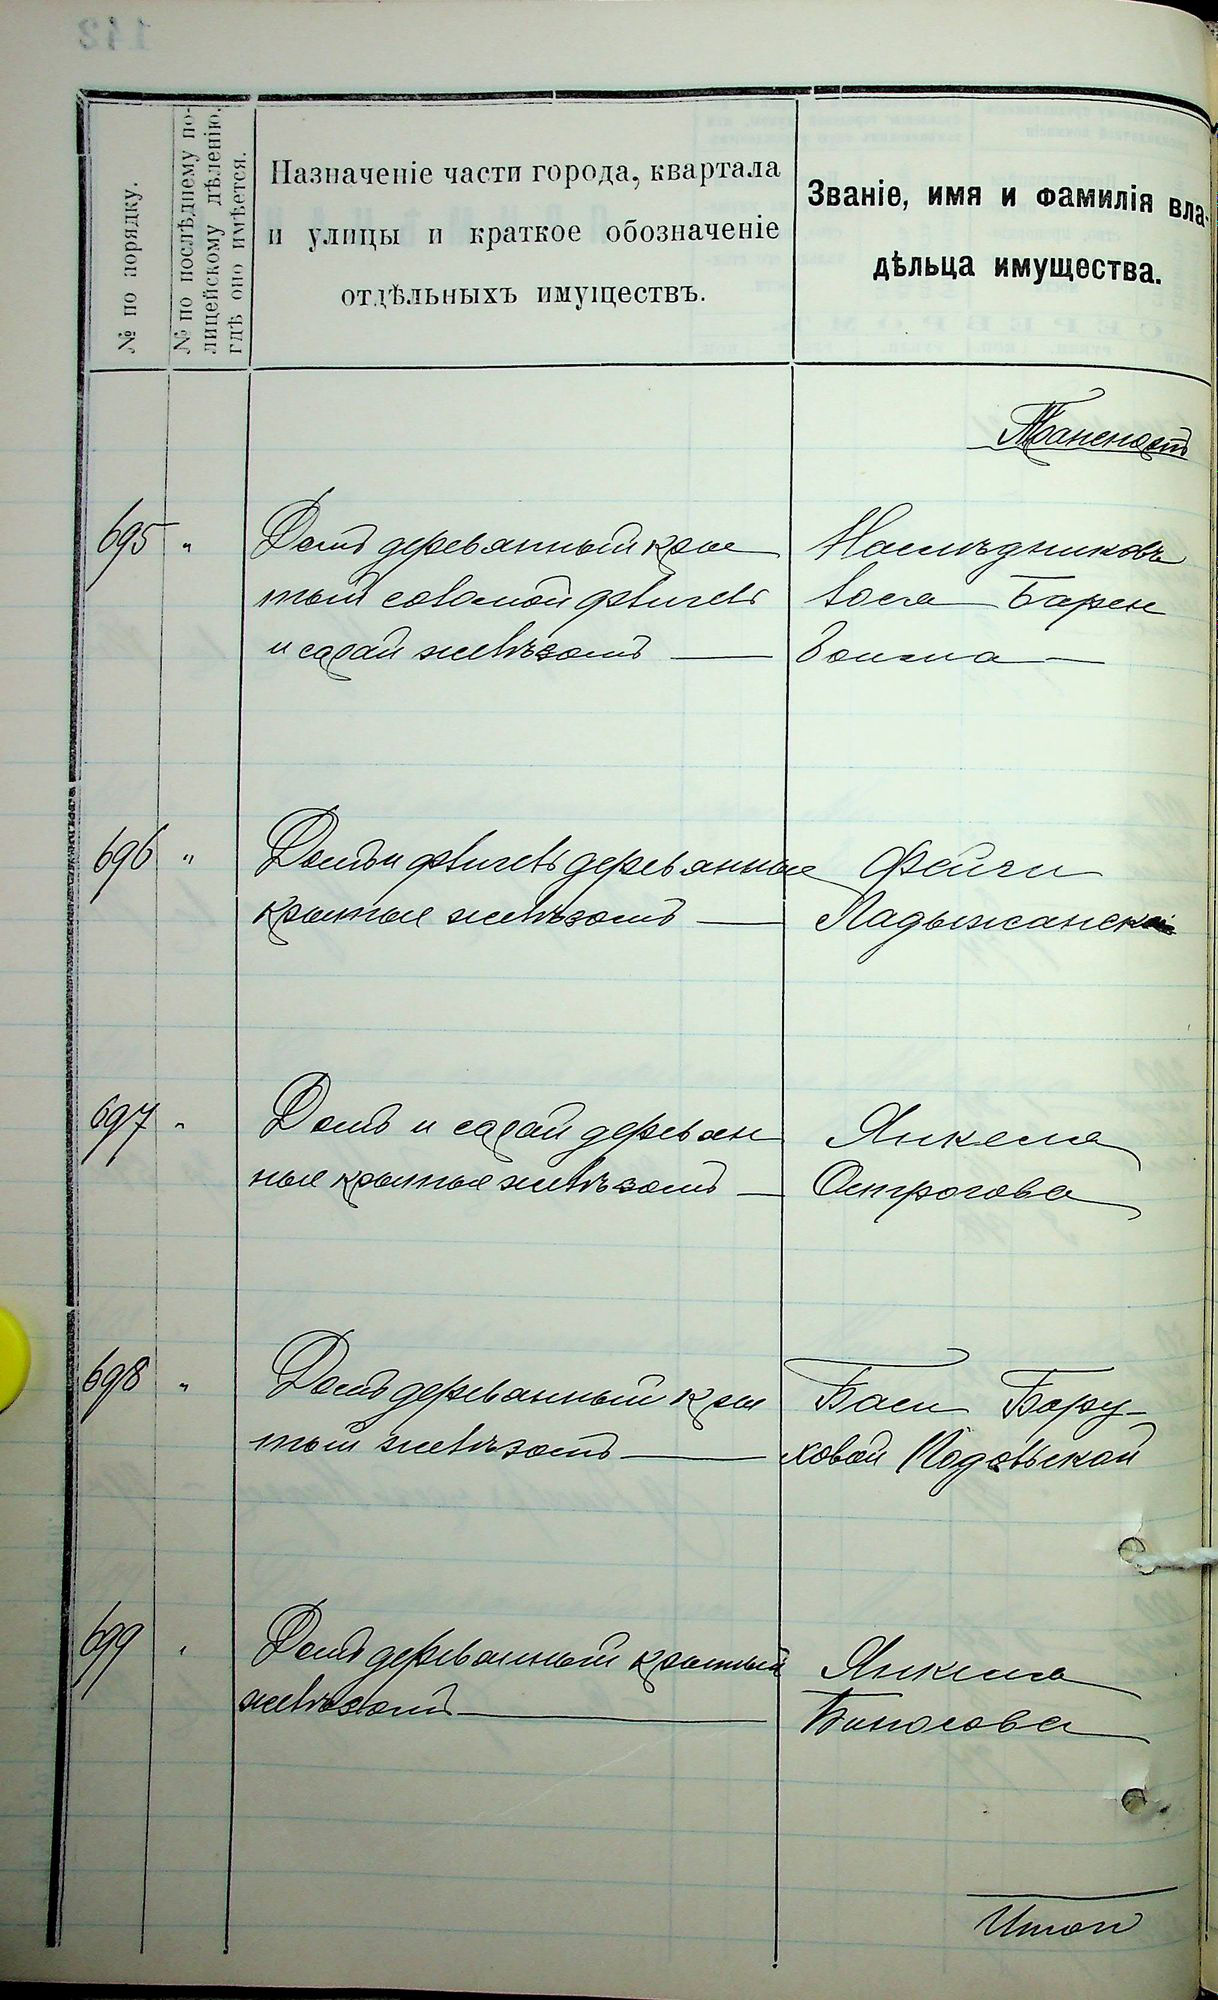 № по порядку.
№ по послѣднему по-
лицейскому дѣленію,
гдѣ оно имѣется.
Назначеніе части города, квартала
и улицы и краткое обозначеніе
отдѣльныхъ имуществъ.
Званіе, имя и фамилія вла-
дѣльца имущества.
695 "
Домъ деревянный кры
тый соломой флигель
и сарай желѣзомъ
Наслѣдниковъ
Іося Барен
бойма
696 "
Домъ и флигель деревянные
крытые желѣзомъ
Фейги
Ладыжанской
697 "
Домъ и сарай деревян
ные крытые желѣзомъ
Янкеля
Острогова
698 "
Домъ деревянный кры
тый желѣзомъ
Баси Бору-
ховой Подольской
699 "
Домъ деревянный крытый
желѣзомъ
Янкеля
Билосова
Итого